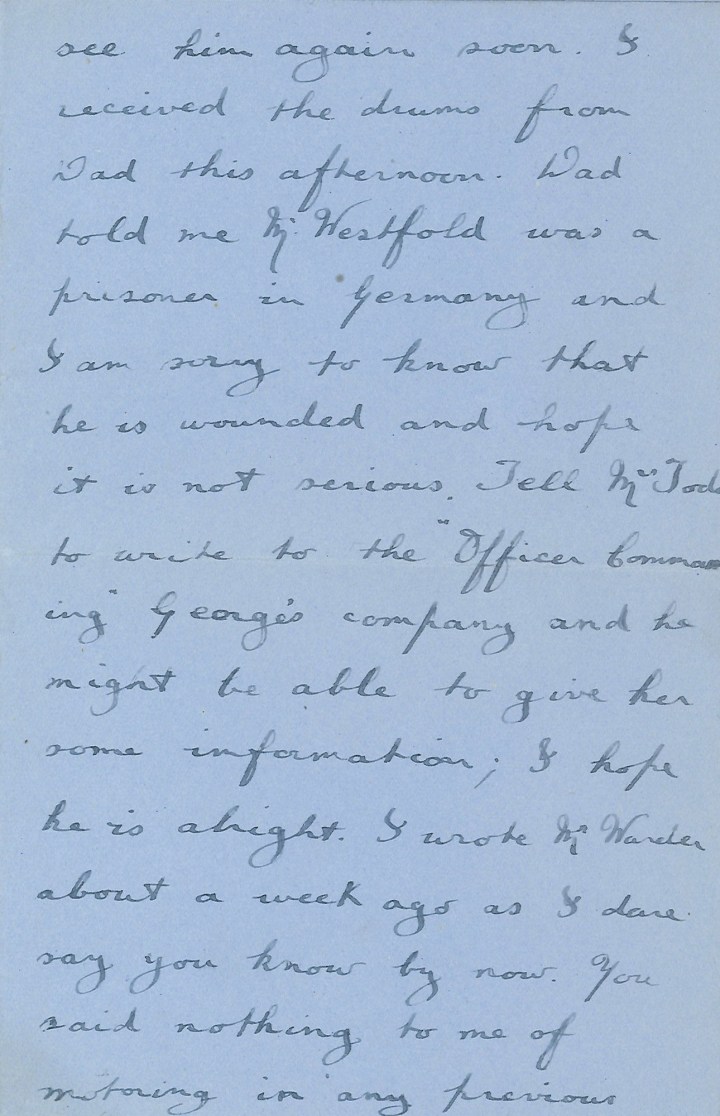 see him again soon. I
received the drums from
Dad this afternoon. Dad
told me Mr. Westfold was a
prisoner in Germany and
I am sorry to know that
he is wounded and hope
it is not serious. Tell Mrs Tod
to write to the "Officer Comman
ing" George's company and he
might be able to give her
some information; I hope
he is alright. I wrote Mr Warder
about a week ago as I dare
say you know by now. You
said nothing to me of
motoring in any previous